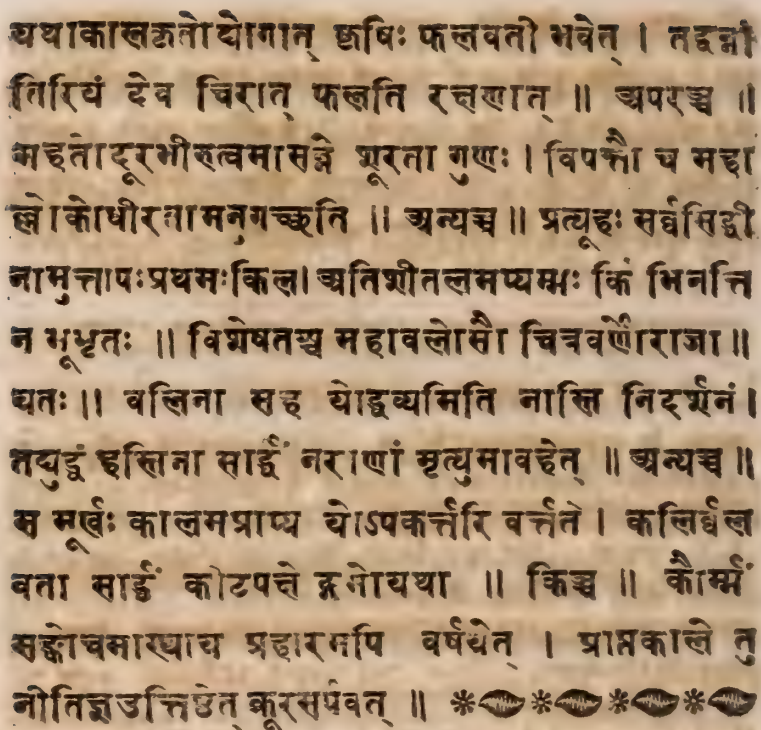 यथाकालकृतोद्योगात् कृषिः फलवती भवेत् । तद्वन्नी
तिरियं देव चिरात् फलति रक्षणात् ॥ अपरञ्च ॥
महतोदूरभीरुत्वमासन्ने शूरता गुणः । विपत्तौ च महा
ल्लोकोधीरतामनुगच्छति ॥ अन्यच्च ॥ प्रत्यूहः सर्व्वसिद्धी
नामुत्तापःप्रथमःकिल। अतिशीतलमप्यम्भः किं भिनत्ति
न भूभृतः ॥ विशेषतश्च महावलोसौ चित्रवर्णोराजा॥
यतः॥ वलिना सह योद्धव्यमिति नास्ति निदर्शनं।
तद्युद्धं हस्तिना सार्द्धं नराणां मृत्युमावहेत् ॥ अन्यच्च ॥
स मूर्खः कालमप्राप्य योऽपकर्त्तरि वर्त्तते । कलिर्व्वल
वता सार्द्धं कीटपक्षो द्गमोयथा ॥ किञ्च ॥ कौर्म्मं
सङ्कोचमास्थाय प्रहारमपि मर्षयेत् । प्राप्तकाले तु
नीतिज्ञउत्तिष्ठेत् क्रूरसर्पवत् ॥